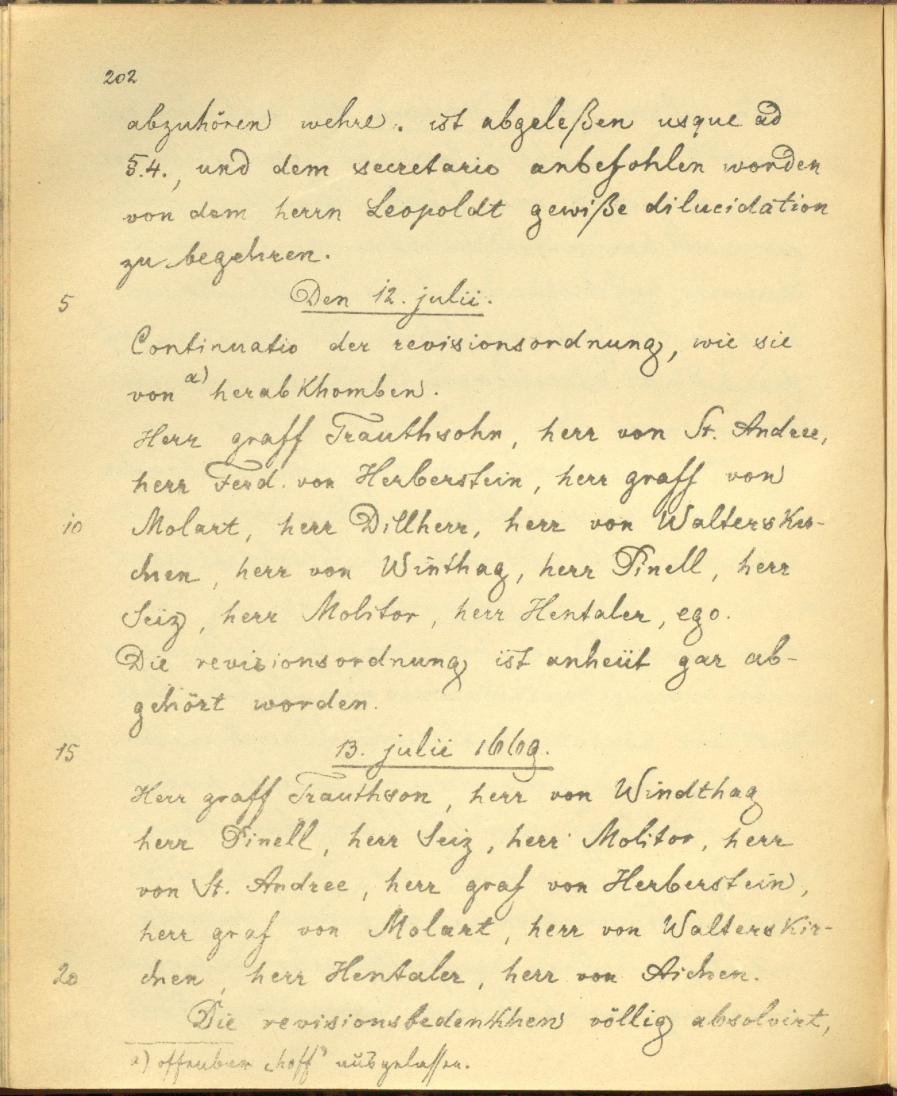 202
abzuhören wehre. ist abgeleßen usque ad
§.4., und dem secretario anbefohlen worden
von dem herrn Leopoldt gewiße dilucidation
zu begehren.
5 Den 12. julii.
Continuatio der revisionsordnung, wie sie
von a) herabkhomben.
Herr graff Trauthsohn, herr von St. Andree,
herr Ferd. von Herberstein, herr graff von
10 Molart, herr Dillherr, herr von Walterskir-
chen, herr von Winthag, herr Pinell, herr
Seiz, herr Molitor, herr Hentaler, ego.
Die revisionsordnung ist anheüt gar ab-
gehört worden.
15 13. julii 1669.
Herr graff Trauthson, herr von Windthag
herr Pinell, herr Seiz, herr Molitor, herr
von St. Andree, herr graf von Herberstein,
herr graf von Molart, herr von Walterskir-
20 chen, herr Hentaler, herr von Aichen.
Die revisionsbedenkhen völlig absolvirt,
a) offenbar „hoff“ ausgelassen.